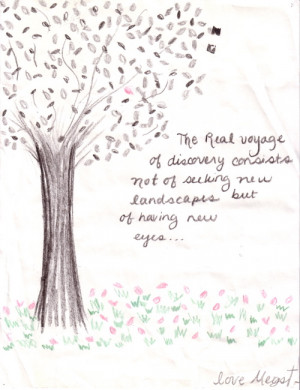 The Real voyage
of discovery consists
not of seeking new
landscapes but
of having new
eyes...
love